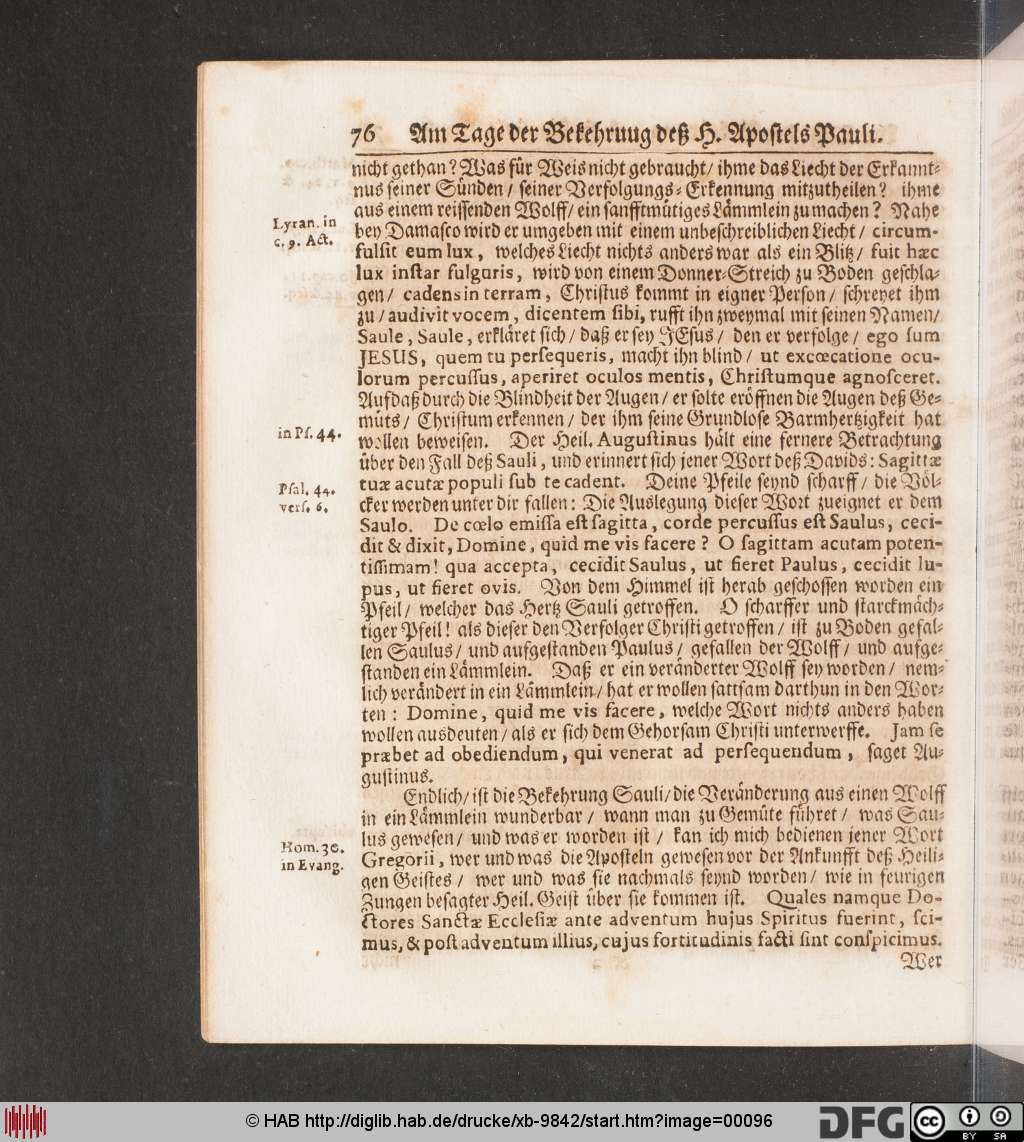 76 Am Tage der Bekehruug deß H. Apostels Pauli.
nicht gethan? Was für Weis nicht gebraucht/ ihme das Liecht der Erkannt-
nus seiner Sünden / seiner Verfolgungs-Erkennung mitzutheilen? ihme
aus einem reissenden Wolff/ ein sanfftmütiges Lämmlein zu machen? Nahe
Lyran. in
c. 9. Act.
bey Damasco wird er umgeben mit einem unbeschreiblichen Liecht / circum-
fulsit eum lux, welches Liecht nichts anders war als ein Blitz/ fuit hæc
lux instar fulguris, wird von einem Donner-Streich zu Boden geschla-
gen/ cadens in terram, Christus kommt in eigner Person/ schreyet ihm
zu / audivit vocem, dicentem sibi, rufft ihn zweymal mit seinen Namen/
Saule, Saule, erkläret sich/ daß er sey JEsus / den er verfolge/ ego sum
JESUS, quem tu persequeris, macht ihn blind/ ut excœcatione ocu-
lorum percussus, aperiret oculos mentis, Christumque agnosceret.
Aufdaß durch die Blindheit der Augen/ er solte eröffnen die Augen deß Ge-
müts/ Christum erkennen/ der ihm seine Grundlose Barmhertzigkeit hat
in Ps. 44.
wollen beweisen. Der Heil. Augustinus hält eine fernere Betrachtung
über den Fall deß Sauli, und erinnert sich jener Wort deß Davids: Sagittæ
Psal. 44.
vers. 6.
tuæ acutæ populi sub te cadent. Deine Pfeile seynd scharff/ die Völ-
cker werden unter dir fallen: Die Auslegung dieser Wort zueignet er dem
Saulo. De cœlo emissa est sagitta, corde percussus est Saulus, ceci-
dit & dixit, Domine, quid me vis facere? O sagittam acutam poten-
tissimam! qua accepta, cecidit Saulus, ut fieret Paulus, cecidit lu-
pus, ut fieret ovis. Von dem Himmel ist herab geschossen worden ein
Pfeil/ welcher das Hertz Sauli getroffen. O scharffer und starckmäch-
tiger Pfeil! als dieser den Verfolger Christi getroffen/ ist zu Boden gefal-
len Saulus/ und aufgestanden Paulus/ gefallen der Wolff/ und aufge-
standen ein Lämmlein. Daß er ein veränderter Wolff sey worden/ nem-
lich verändert in ein Lämmlein/ hat er wollen sattsam darthun in den Wor-
ten: Domine, quid me vis facere, welche Wort nichts anders haben
wollen ausdeuten/ als er sich dem Gehorsam Christi unterwerffe. Jam se
præbet ad obediendum, qui venerat ad persequendum, saget Au-
gustinus.
Endlich/ ist die Bekehrung Sauli/ die Veränderung aus einen Wolff
in ein Lämmlein wunderbar/ wann man zu Gemüte führet/ was Sau-
lus gewesen/ und was er worden ist/ kan ich mich bedienen jener Wort
Hom. 30.
in Evang.
Gregorii, wer und was die Aposteln gewesen vor der Ankunfft deß Heili-
gen Geistes / wer und was sie nachmals seynd worden/ wie in feurigen
Zungen besagter Heil. Geist über sie kommen ist. Quales namque Do-
ctores Sanctæ Ecclesiæ ante adventum hujus Spiritus fuerint, sci-
mus, & post adventum illius, cujus fortitudinis facti sint conspicimus.
Wer
© HAB http://diglib.hab.de/drucke/xb-9842/start.htm?image=00096
DFG
cc BY SA